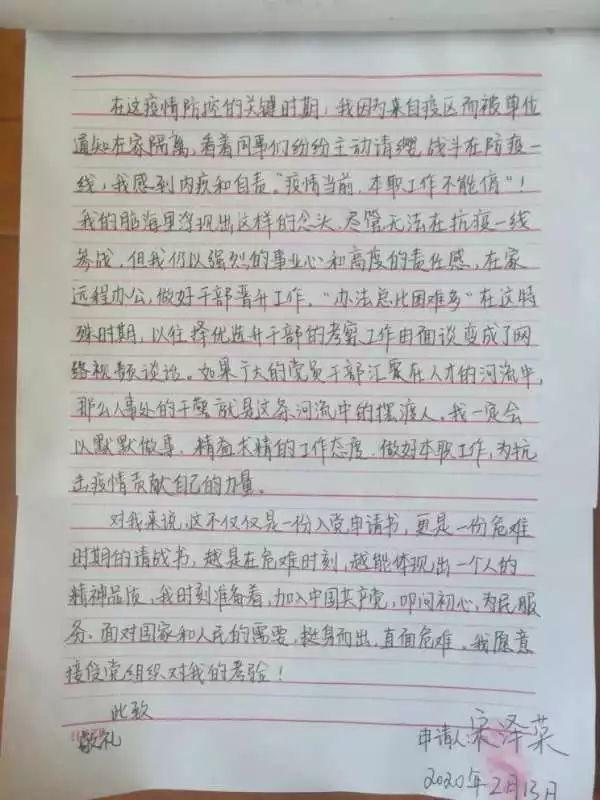 在这疫情防控的关键时期，我因为来自疫区而被单位
通知在家隔离，看着同事们纷纷主动请缨，战斗在防疫一
线，我感到内疚和自责。"疫情当前，本职工作不能停"！
我的脑海里浮现出这样的念头，尽管无法在抗疫一线
参战，但我仍以强烈的事业心和高度的责任感，在家
远程办公，做好干部晋升工作。"办法总比困难多"在这特
殊时期，以往择优选升干部的考察工作由面谈变成了网
络视频谈话。如果广大的党员干部汇聚在人才的河流中，
那么人事处的干警就是这条河流中的摆渡人。我一定会
以默默做事、精益求精的工作态度，做好本职工作，为抗
击疫情贡献自己的力量。
对我来说，这不仅仅是一份入党申请书，更是一份危难
时期的请战书，越是在危难时刻，越能体现出一个人的
精神品质，我时刻准备着，加入中国共产党，叩问初心，为民服
务、面对国家和人民的需要，挺身而出，直面危难。我愿意
接受党组织对我的考验！
此致
敬礼
申请人 宋泽荣
2020年2月13日